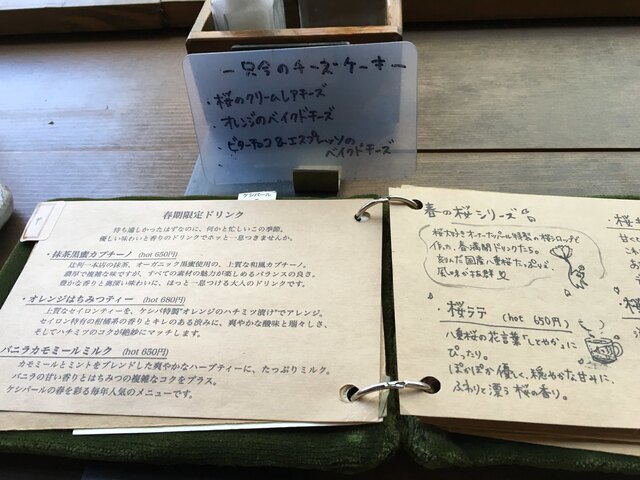 ー只今のチーズケーキー
・桜のクリームレアチーズ
・オレンジのベイクドチーズ
・ビターチョコ&エスプレッソの
ベイクドチーズ
ケシパール
春期限定ドリンク
待ち遠しかったはずなのに、何かと忙しいこの季節。
優しい味わいと香りのドリンクでホッと一息つきませんか。
・抹茶黒蜜カプチーノ (hot 650円)
辻利一本店の抹茶、オーガニック黒蜜使用の、上質な和風カプチーノ。
濃厚で複雑な味ですが、すべての素材の魅力が楽しめるバランスの良さ。
豊かな香りと奥深い味わいに、ほっと一息つける大人のドリンクです。
・オレンジはちみつティー (hot 680円)
上質なセイロンティーを、ケシパ特製"オレンジのハチミツ漬け"でアレンジ。
セイロン特有の柑橘系の香りとキレのある渋みに、爽やかな酸味と瑞々しさ、
そしてハチミツのコクが絶妙にマッチします。
バニラカモミールミルク (hot 650円)
カモミールとミントをブレンドした爽やかなハーブティーに、たっぷりミルク。
バニラの甘い香りとはちみつの複雑なコクをプラス。
ケシパールの春を彩る毎年人気のメニューです。
春の桜シリーズ
桜大好きオーナーナッパが特製の桜シロップで
作った、春満開ドリンクたち。
国産八重桜たっぷりで、
風味が抜群
・桜ラテ (hot 650円)
八重桜の花言葉「しとやか」に
ぴったり。
ぽかぽか優しく、穏やかな甘みに、
ふわりと漂う桜の香り。